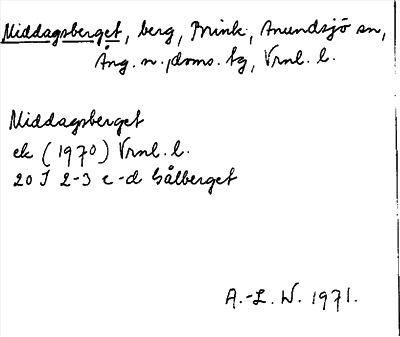 Middagsberget, berg, Brink, Anundsjö sn,
Ång. n., doms. tg, Vrnl. l.
Middagsberget
ek (1970) Vrnl. l.
20 J 2-3 c-d Gålberget
A.-L. W. 1971.